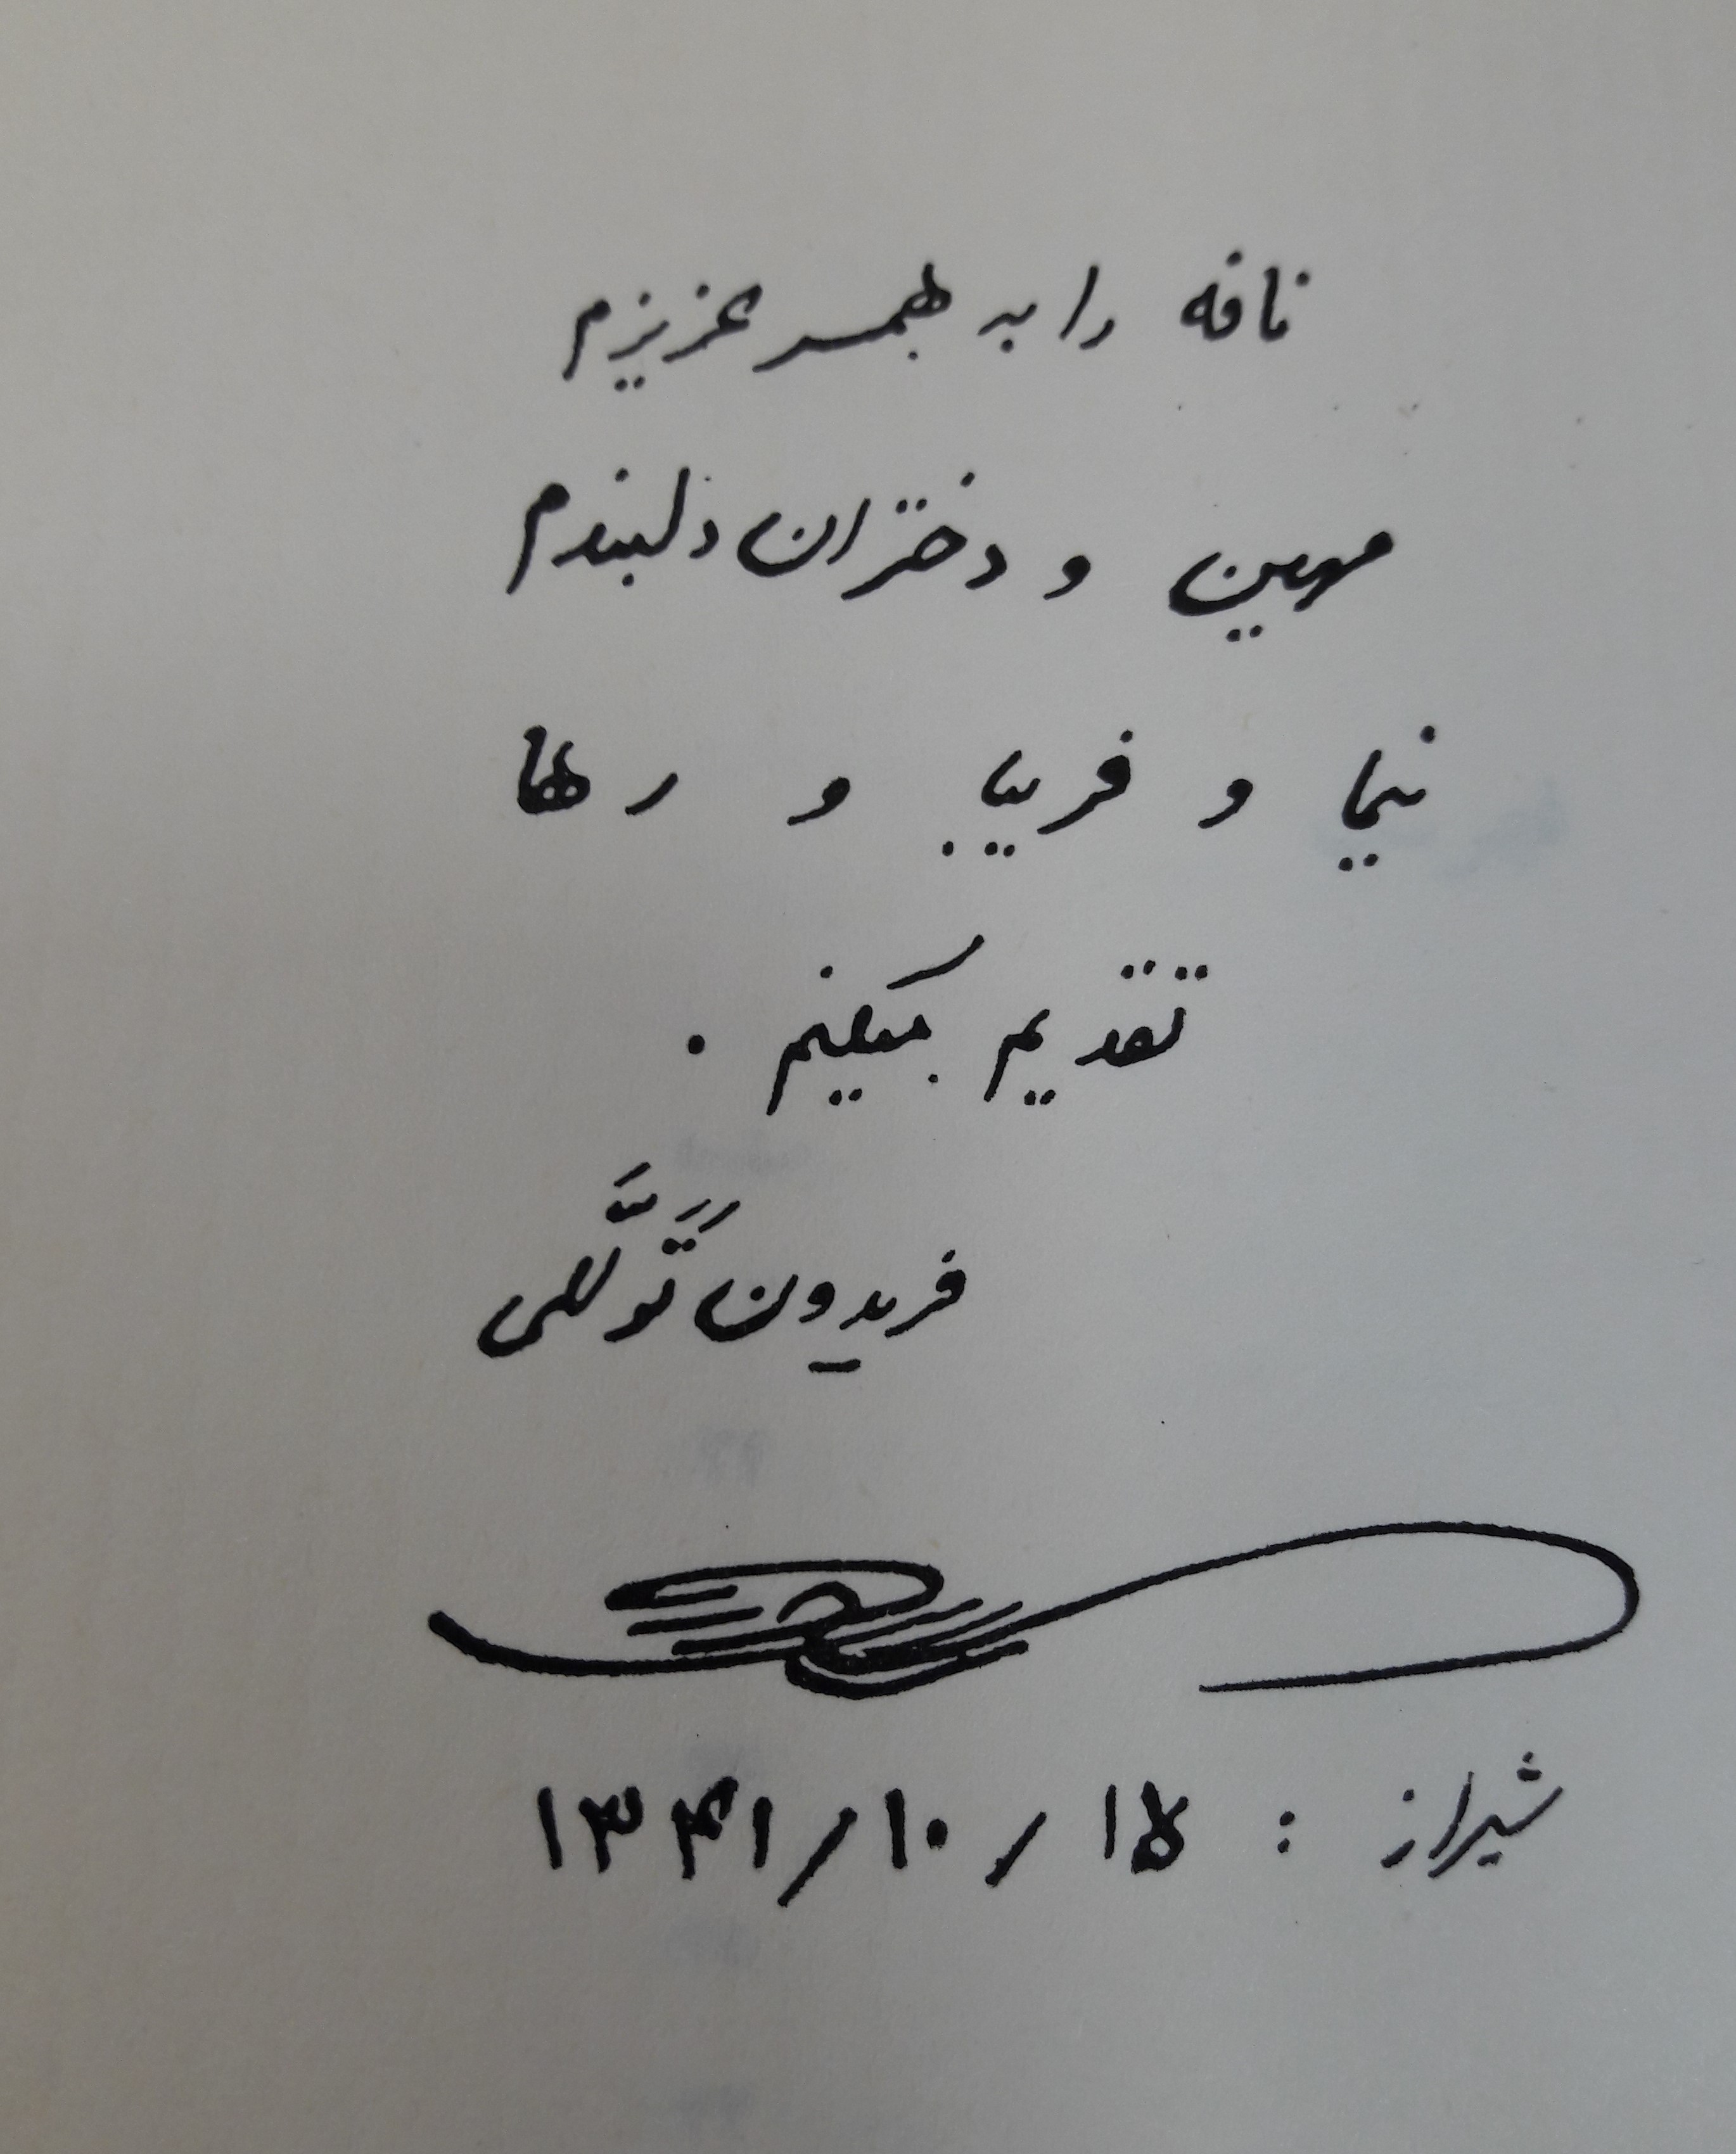 نافه را به همسر عزیزم
مهین و دختران دلبندم
نیما و فریبا و رها
تقدیم میکنم .
فریدون تَوَلَّلی
شیراز : ۱۵ / ۱۰ / ۱۳۴۱